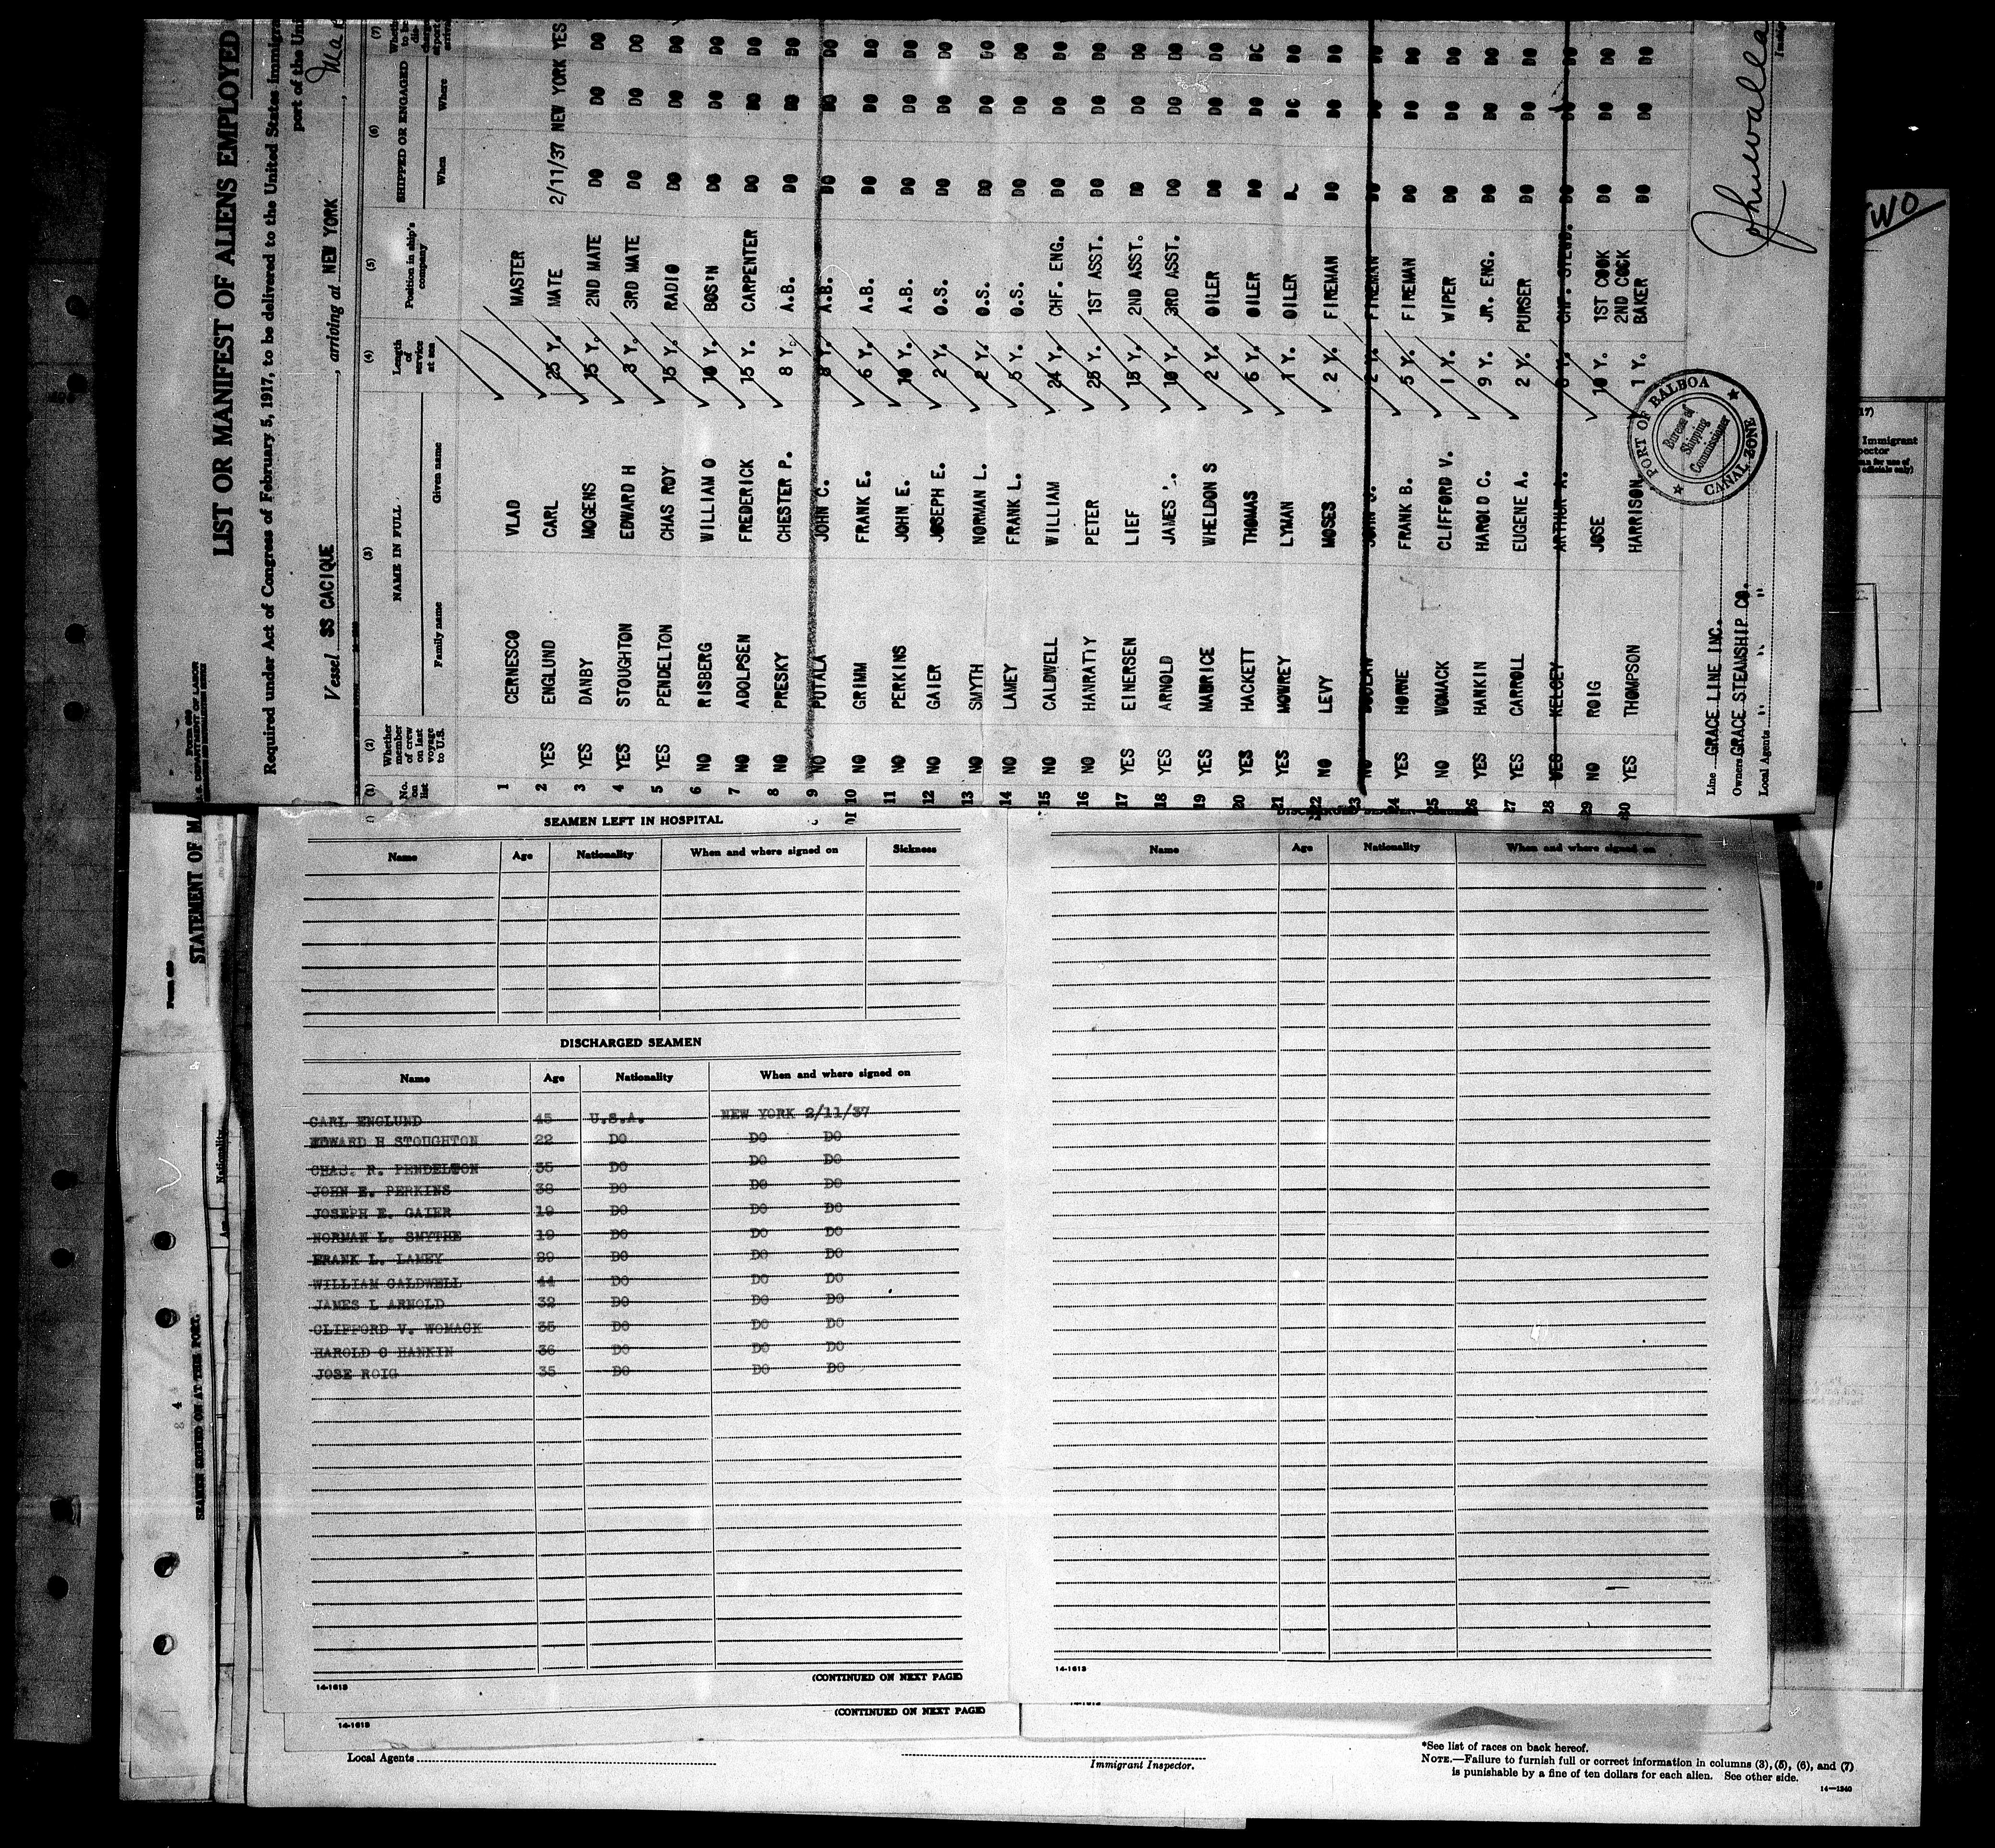 LIST OR MANIFEST OF ALIENS EMPLOYED
Required under Act of Congress of February 5, 1917, to be delivered to the United States Immigra
port of the Uni
Vessel SS CACIQUE, arriving at NEW YORK
(1) No. on list (2) Whether member of crew on last voyage to U.S. (3) NAME IN FULL Family name Given name (4) Length of service at sea (5) Position in ship's company (6) SHIPPED OR ENGAGED When Where (7)
1 CERNESCO VLAD MASTER
2 YES ENGLUND CARL 25 Y. MATE 2/11/37 NEW YORK YES
3 YES DANBY MOGENS 15 Y. 2ND MATE DO DO DO
4 YES STOUGHTON EDWARD H 3 Y. 3RD MATE DO DO DO
5 YES PENDELTON CHAS ROY 15 Y. RADIO DO DO DO
6 NO RISBERG WILLIAM O 10 Y. BOS'N DO DO DO
7 NO ADOLPSEN FREDERICK 15 Y. CARPENTER DO DO DO
8 NO PRESKY CHESTER P. 8 Y. A.B. DO DO DO
9 NO PUTALA JOHN C. 8 Y. A.B. DO DO DO
10 NO GRIMM FRANK E. 6 Y. A.B. DO DO DO
11 NO PERKINS JOHN E. 10 Y. A.B. DO DO DO
12 NO GAIER JOSEPH E. 2 Y. O.S. DO DO DO
13 NO SMYTH NORMAN L. 2 Y. O.S. DO DO DO
14 NO LAMEY FRANK L. 5 Y. O.S. DO DO DO
15 NO CALDWELL WILLIAM 24 Y. CHF. ENG. DO DO DO
16 NO HANRATIY PETER 25 Y. 1ST ASST. DO DO DO
17 YES EINERSEN LIEF 15 Y. 2ND ASST. DO DO DO
18 YES ARNOLD JAMES L. 10 Y. 3RD ASST. DO DO DO
19 YES MABRICE WHELDON S 2 Y. OILER DO DO DO
20 YES HACKETT THOMAS 6 Y. OILER DO DO DO
21 YES MOWREY LYMAN 1 Y. OILER DO DO
22 NO LEVY MOSES 2 Y. FIREMAN DO DO DO
23 NO JOHN J. 2 Y. FIREMAN DO DO DO
24 YES HORNE FRANK B. 5 Y. FIREMAN DO DO DO
25 NO WOMACK CLIFFORD V. 1 Y. WIPER DO DO DO
26 YES HANKIN HAROLD C. 9 Y. JR. ENG. DO DO DO
27 YES CARROLL EUGENE A. 2 Y. PURSER DO DO DO
28 YES KELSEY ARTHUR A. 8 Y. CHF. STEWD. DO DO DO
29 NO ROIG JOSE 10 Y. 1ST COOK DO DO DO
30 YES THOMPSON HARRISON 1 Y. 2ND COOK BAKER DO DO DO
PORT OF BALBOA
Bureau of Shipping Commissioner
CANAL ZONE
Line GRACE LINE INC.
Owners GRACE STEAMSHIP CO.
Local Agents " " " "
U.S. DEPARTMENT OF LABOR
STATEMENT OF MA
SEAMEN SIGNED ON AT THIS PORT.
Nationality
WO
Immigrant
SEAMEN LEFT IN HOSPITAL
Name Age Nationality When and where signed on Sickness
DISCHARGED SEAMEN
Name Age Nationality When and where signed on
CARL ENGLUND 45 U.S.A. NEW YORK 2/11/37
EDWARD H STOUGHTON 22 DO DO DO
CHAS. R. PENDELTON 35 DO DO DO
JOHN E. PERKINS 38 DO DO DO
JOSEPH E. GAIER 19 DO DO DO
NORMAN L. SMYTHE 19 DO DO DO
FRANK L. LAMEY 29 DO DO DO
WILLIAM CALDWELL 44 DO DO DO
JAMES L ARNOLD 32 DO DO DO
CLIFFORD V. WOMACK 35 DO DO DO
HAROLD C HANKIN 36 DO DO DO
JOSE ROIG 35 DO DO DO
14-1613
(CONTINUED ON NEXT PAGE)
14-1613
(CONTINUED ON NEXT PAGE)
DISCHARGED SEAMEN
Name Age Nationality When and where signed on
14-1613
Local Agents
Immigrant Inspector.
*See list of races on back hereof.
NOTE.—Failure to furnish full or correct information in columns (3), (5), (6), and (7)
is punishable by a fine of ten dollars for each alien. See other side.
14—1240